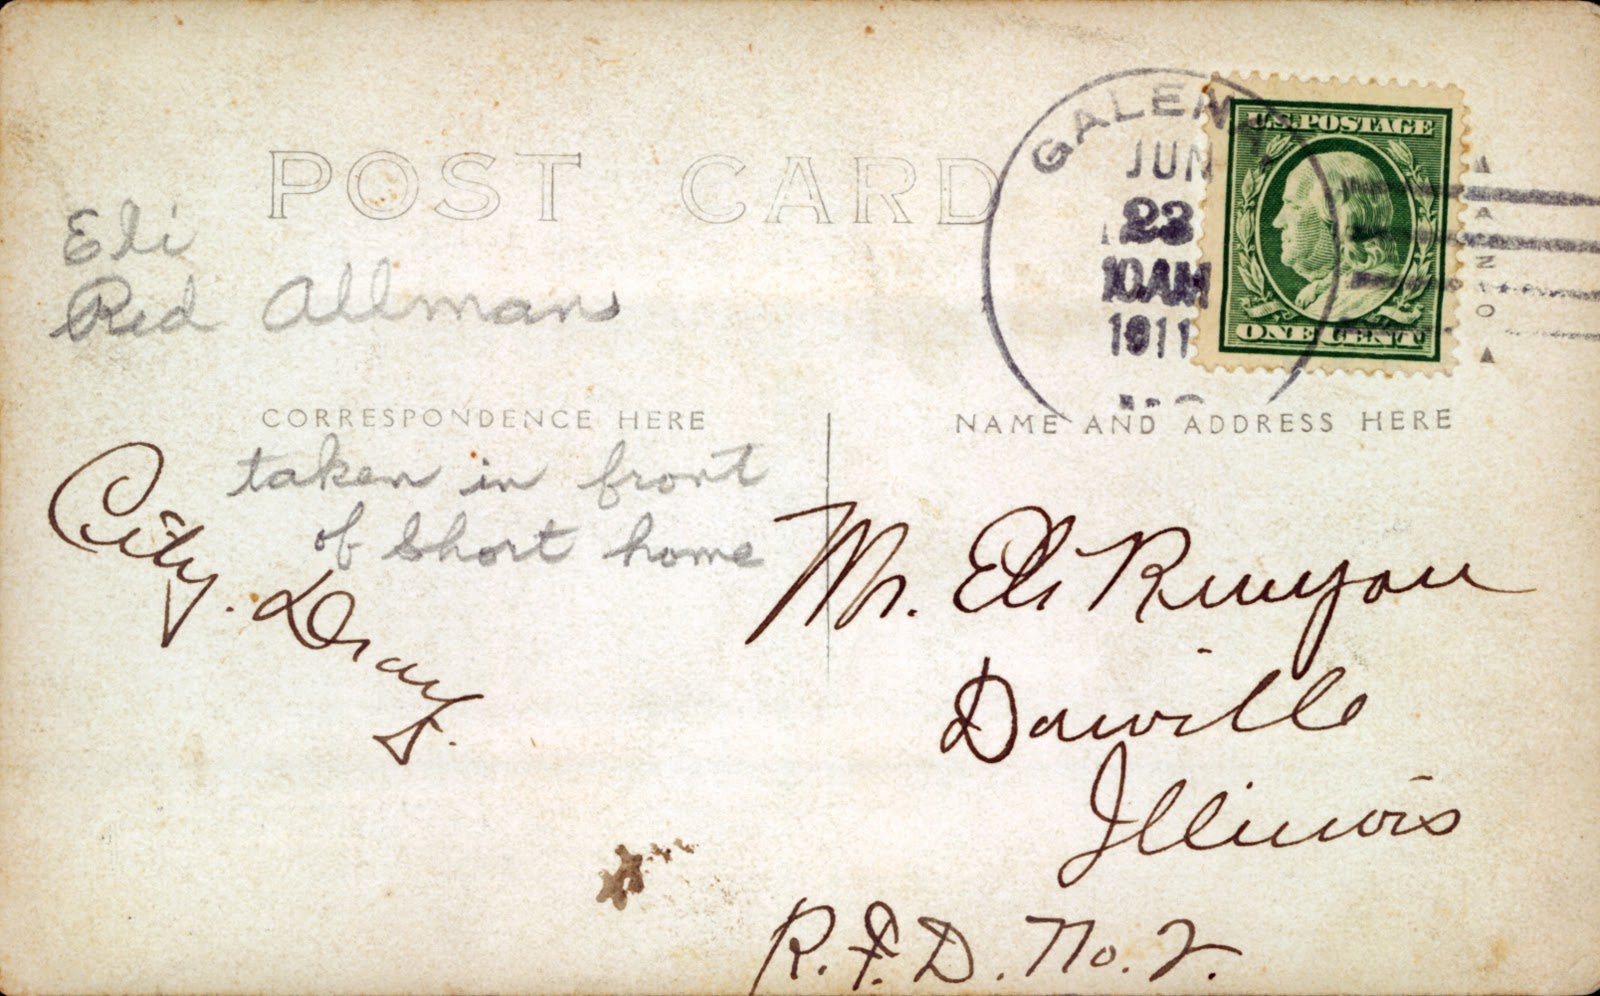 POST CARD
GALENA
JUN
23
10 AM
1911
U.S. POSTAGE
ONE CENT
Eli
Red Allman
CORRESPONDENCE HERE
taken in front
of Short home
City. Dray.
NAME AND ADDRESS HERE
Mr. Eli Runyon
Danville
Illinois
R.F.D. No. 2.